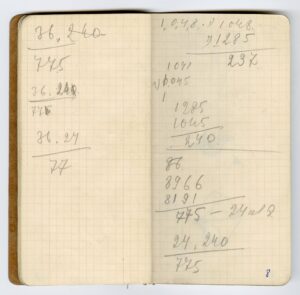 36.240
775
36.240
775
36.24
77
1,0,4,8.
1048
1285
237
1041
1045
1
1285
1045
240
86
8966
8191
775 — 24
24.240
775
8